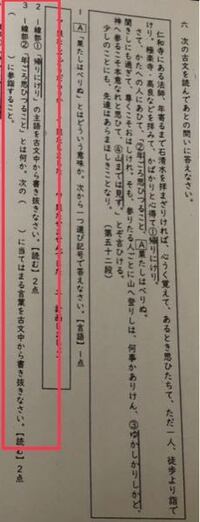 六 次の古文を読んであとの問いに答えなさい。
仁和寺にある法師、年寄るまで石清水を拝まざりければ、心うく覚えて、あるとき思ひたちて、ただ一人、徒歩より詣で
けり。極楽寺・高良などを拝みて、かばかりと心得て①帰りにけり。
さて、かたへの人にあひて、「②年ごろ思ひつること、A果たしはべりぬ。
聞きしにも過ぎて、尊くこそおはしけれ。そも、参りたる人ごとに山へ登りしは、何事かありけん、③ゆかしかりしかど、
神へ参るこそ本意なれと思ひて、④山までは見ず。」とぞ言ひける。
少しのことにも、先達はあらまほしきことなり。 (第五十二段)
1 A「果たしはべりぬ」とはどういう意味か、次から一つ選び記号で答えなさい。【言語】1点
2 ―線部①「帰りにけり」の主語を古文中から書き抜きなさい。【読む】2点
3 ―線部②「年ごろ思ひつること」とは何か、次の( )に当てはまる言葉を古文中から書き抜きなさい。【読む】2点
( )に参詣すること。